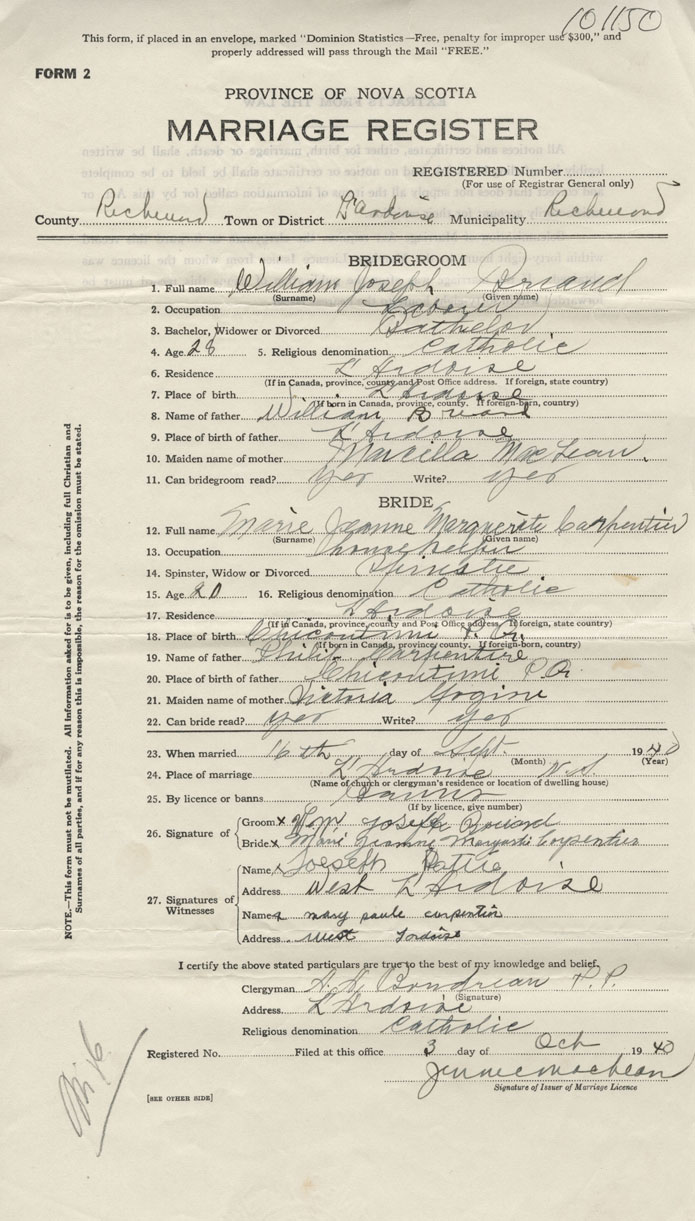 101150
This form, if placed in an envelope, marked "Dominion Statistics—Free, penalty for improper use $300," and
properly addressed will pass through the Mail "FREE."
FORM 2
PROVINCE OF NOVA SCOTIA
MARRIAGE REGISTER
REGISTERED Number
(For use of Registrar General only)
County Richmond Town or District L'Ardoise Municipality Richmond
BRIDEGROOM
1. Full name William Joseph
(Surname) (Given name)
2. Occupation Labourer
3. Bachelor, Widower or Divorced Bathelor
4. Age 28 5. Religious denomination Catholic
6. Residence L'Ardoise
(If in Canada, province, county and Post Office address. If foreign, state country)
7. Place of birth L'Ardoise
(If born in Canada, province, county. If foreign-born, country)
8. Name of father William
9. Place of birth of father L'Ardoise
10. Maiden name of mother MacLean
11. Can bridegroom read? yes Write? yes
BRIDE
12. Full name Marie Jeanne Marguerite Carpentier
(Surname) (Given name)
13. Occupation
14. Spinster, Widow or Divorced
15. Age 20 16. Religious denomination Catholic
17. Residence L'Ardoise
(If in Canada, province, county and Post Office address. If foreign, state country)
18. Place of birth Chicoutimi P.Q.
(If born in Canada, province, county. If foreign-born, country)
19. Name of father Carpentire
20. Place of birth of father Chicoutimi P.Q.
21. Maiden name of mother Victoria
22. Can bride read? yes Write? yes
23. When married 16th day of Sept. 1940
(Month) (Year)
24. Place of marriage L'Ardoise N.S.
(Name of church or clergyman's residence or location of dwelling house)
25. By licence or banns Banns
(If by licence, give number)
26. Signature of
Groom x Wm Joseph
Bride x Marie Jeanne Carpentier
27. Signatures of Witnesses
Name x Joeseph
Address West L'Ardoise
Name x mary paule carpentier
Address West
I certify the above stated particulars are true to the best of my knowledge and belief.
Clergyman P.P.
(Signature)
Address L'Ardoise
Religious denomination Catholic
Registered No. Filed at this office 3 day of Oct 1940
Signature of Issuer of Marriage Licence
[SEE OTHER SIDE]
NOTE.—This form must not be mutilated. All information asked for is to be given, including full Christian and
Surnames of all parties, and if for any reason this is impossible, the reason for the omission must be stated.